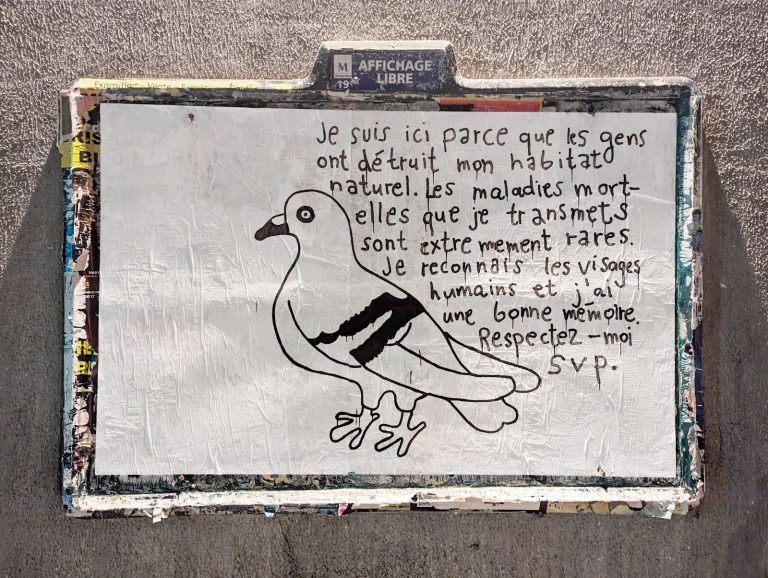 M AFFICHAGE
19e LIBRE
Exposition - Vente
Je suis ici parce que les gens
ont détruit mon habitat
naturel. Les maladies mort-
elles que je transmets
sont extremement rares.
Je reconnais les visages
humains et j'ai
une bonne mémoire.
Respectez-moi
svp.